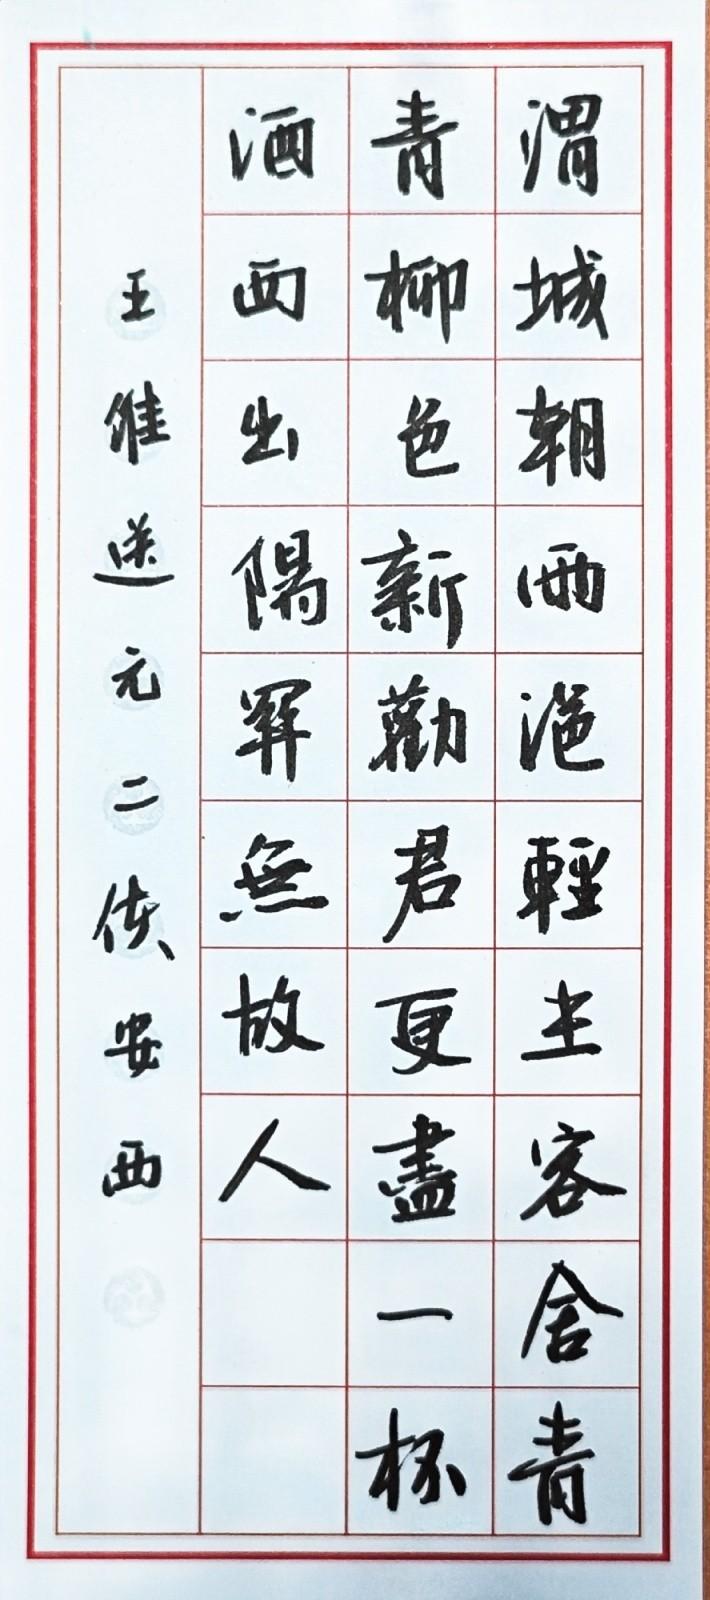 渭城朝雨浥輕尘客舍青
青柳色新勸君更盡一杯
酒西出陽関無故人
王維送元二使安西